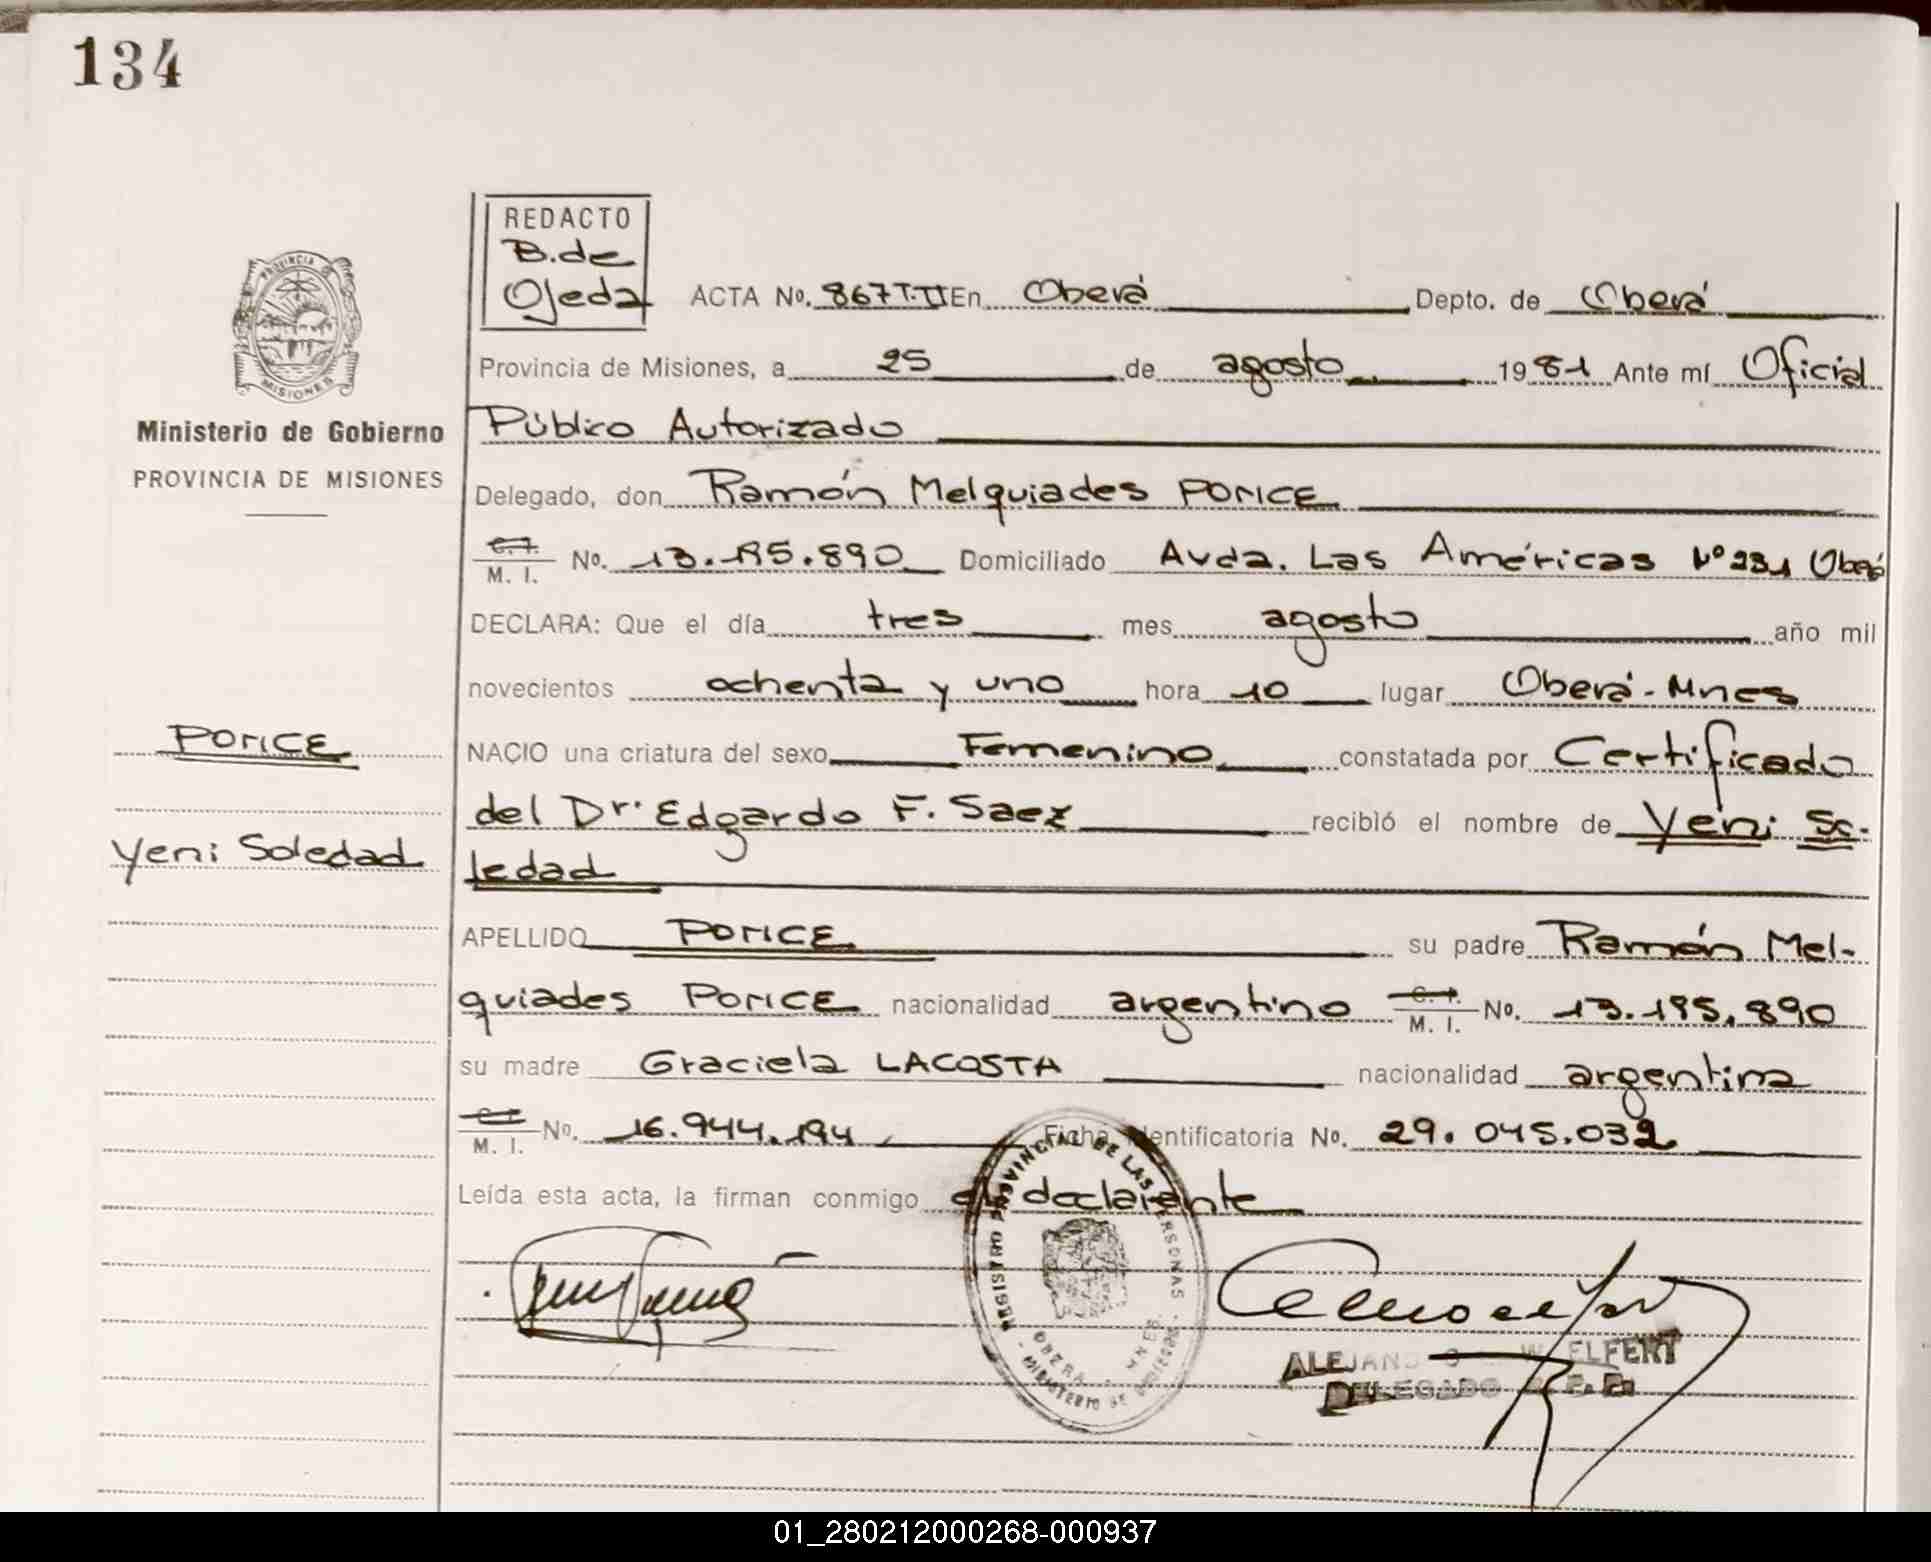 134
REDACTO
B. de
Ojeda
ACTA No. 867 T. II En Oberá Depto. de Oberá
Provincia de Misiones, a 25 de agosto 1981 Ante mí Oficial
Público Autorizado
Delegado, don Ramón Melquiades PONCE
C. I.
M. I. No. 13.195.890 Domiciliado Avda. Las Américas Nº 231 Oberá
DECLARA: Que el día tres mes agosto año mil
novecientos ochenta y uno hora 10 lugar Oberá - Mnes
NACIO una criatura del sexo Femenino constatada por Certificado
del Dr. Edgardo F. Saez recibió el nombre de Yeni So-
ledad
APELLIDO PONCE su padre Ramón Mel-
quiades PONCE nacionalidad argentino C. I. M. I. No. 13.195.890
su madre Graciela LACOSTA nacionalidad argentina
C. I.
M. I. No. 16.944.194 Ficha identificatoria No. 29.045.032
Leída esta acta, la firman conmigo el declarante
PROVINCIA DE
MISIONES
Ministerio de Gobierno
PROVINCIA DE MISIONES
PONCE
Yeni Soledad
REGISTRO PROVINCIAL DE LAS PERSONAS
OBERA
MINISTERIO DE
DELEGADO
01_280212000268-000937